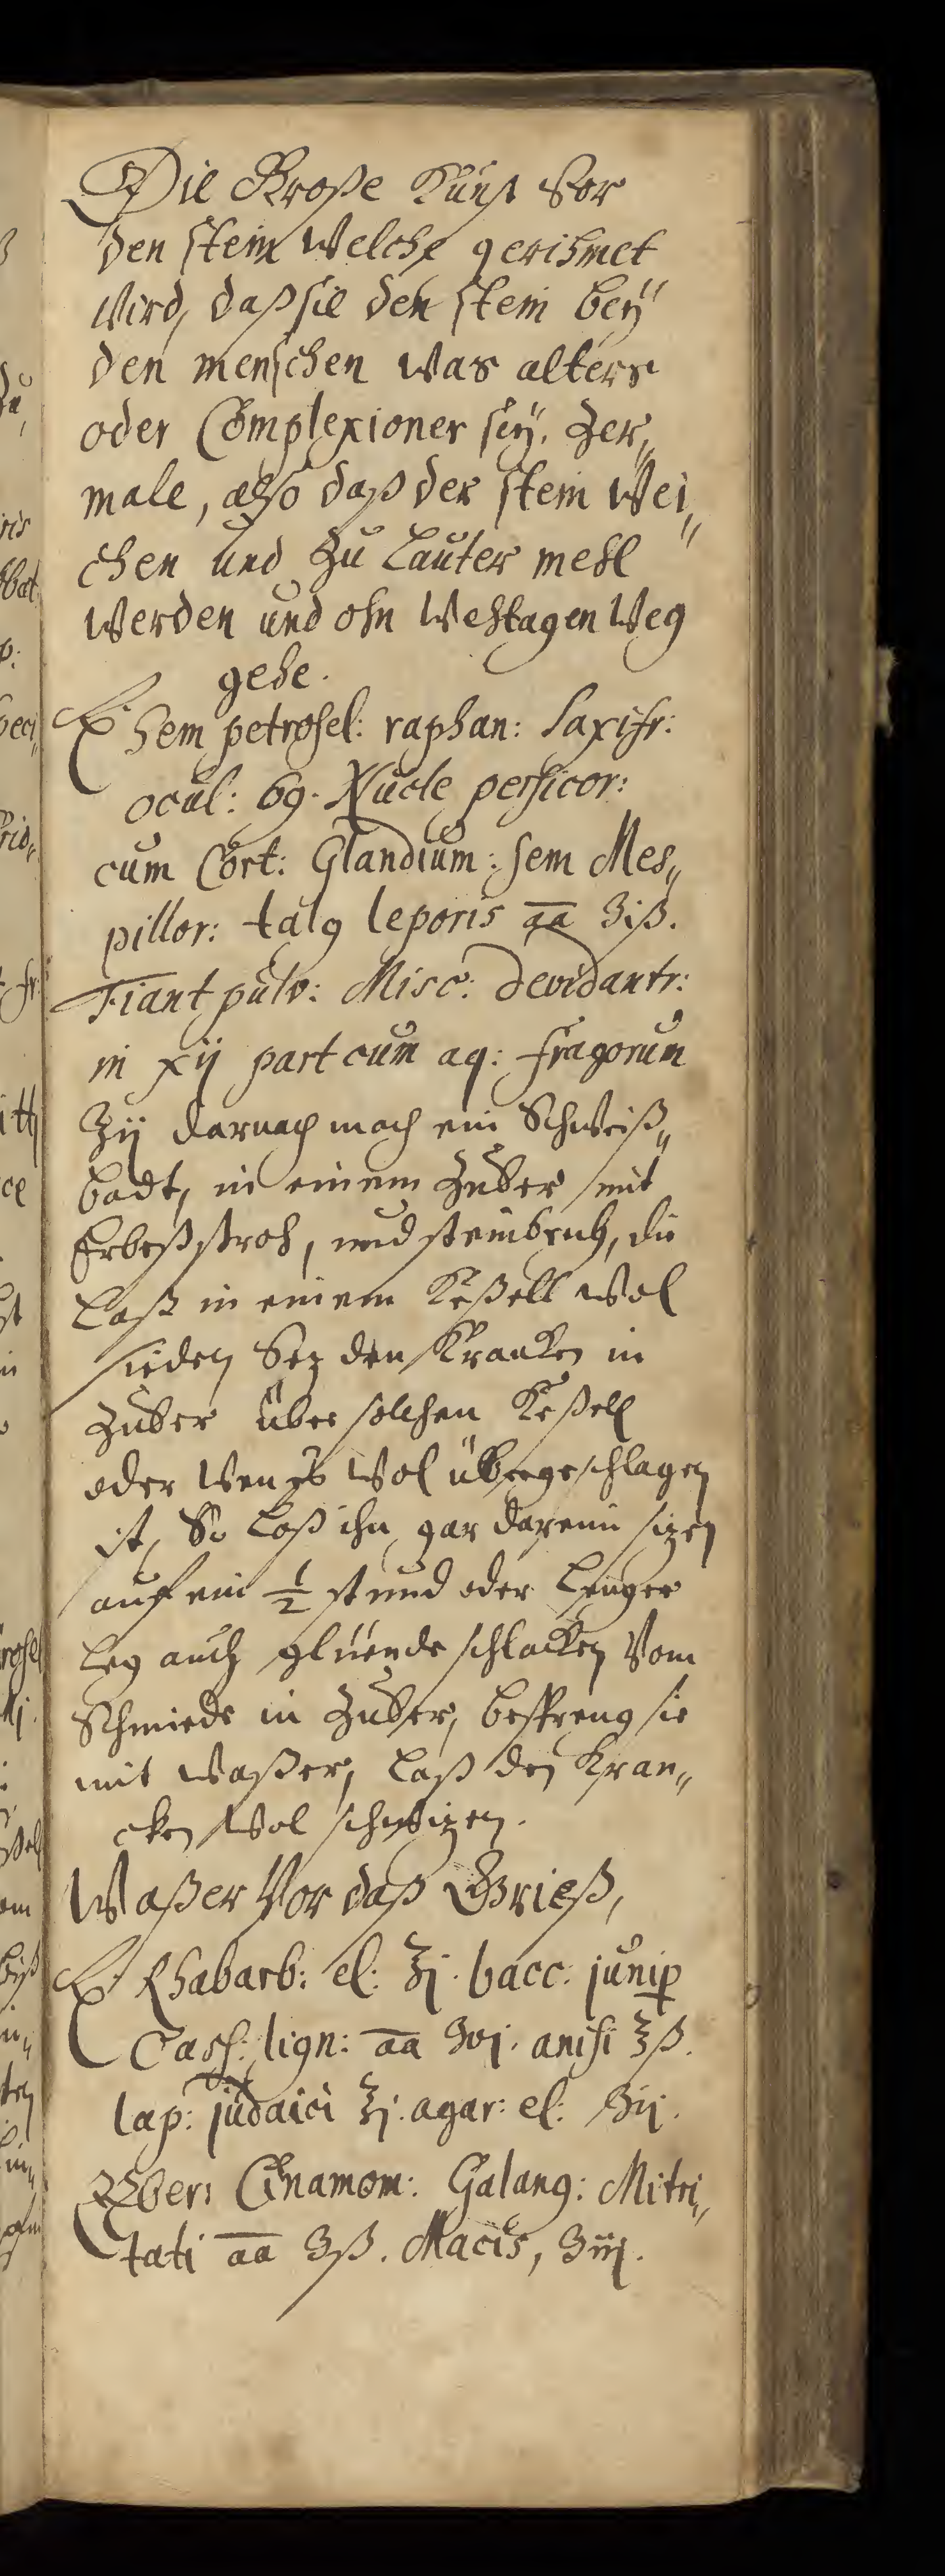 Die Große Kunst Vor
den stein Welche gerihmet
Wird, daß sie den stein beÿ
den menschen was alters
oder Complexioner seÿ. Zer„
male, also daß der stein Wei„
chen und Zu Lauter mehl
Werden und ohn Wehtagen Weg
gehe.
℞ Sem petrosel: raphan: Saxifr:
ocul: 69. Nucle persicor:
cum Cort: Glandium: sem Mes„
pillor: talg leporis a͞a ʒiß.
Fiant pulv: Misc: devidantr:
in xij part cum aq: fragorum
℥ij darnach mach ein Schweiß„
badt, in einem Zuber mit
Erbeßstroh, und steinbruch, die
Laß in einem Keßell Wol
sieden Sez den Krancken in
Zuber über solchen Keßell
oder Wen es Wol übergeschlagen
ist, So Laß ihn gar darein sizen
auf ein ½ stund oder Lenger
Leg auch glüende schlacken Vom
Schmiede in Zuber, bespreng sie
mit Waßer, Laß den Kran„
cken Wol schwizen.
Waßer Vor daß Grieß,
℞ Rhabarb: el: ℥j. bacc: junip
Cass: lign: a͞a ʒvj. anisi ℥ß.
lap: judaici ℥j. agar: el: ʒij.
Zberi Cinamom: Galang: Mitri„
tati a͞a ʒß. Macis, ʒiij.